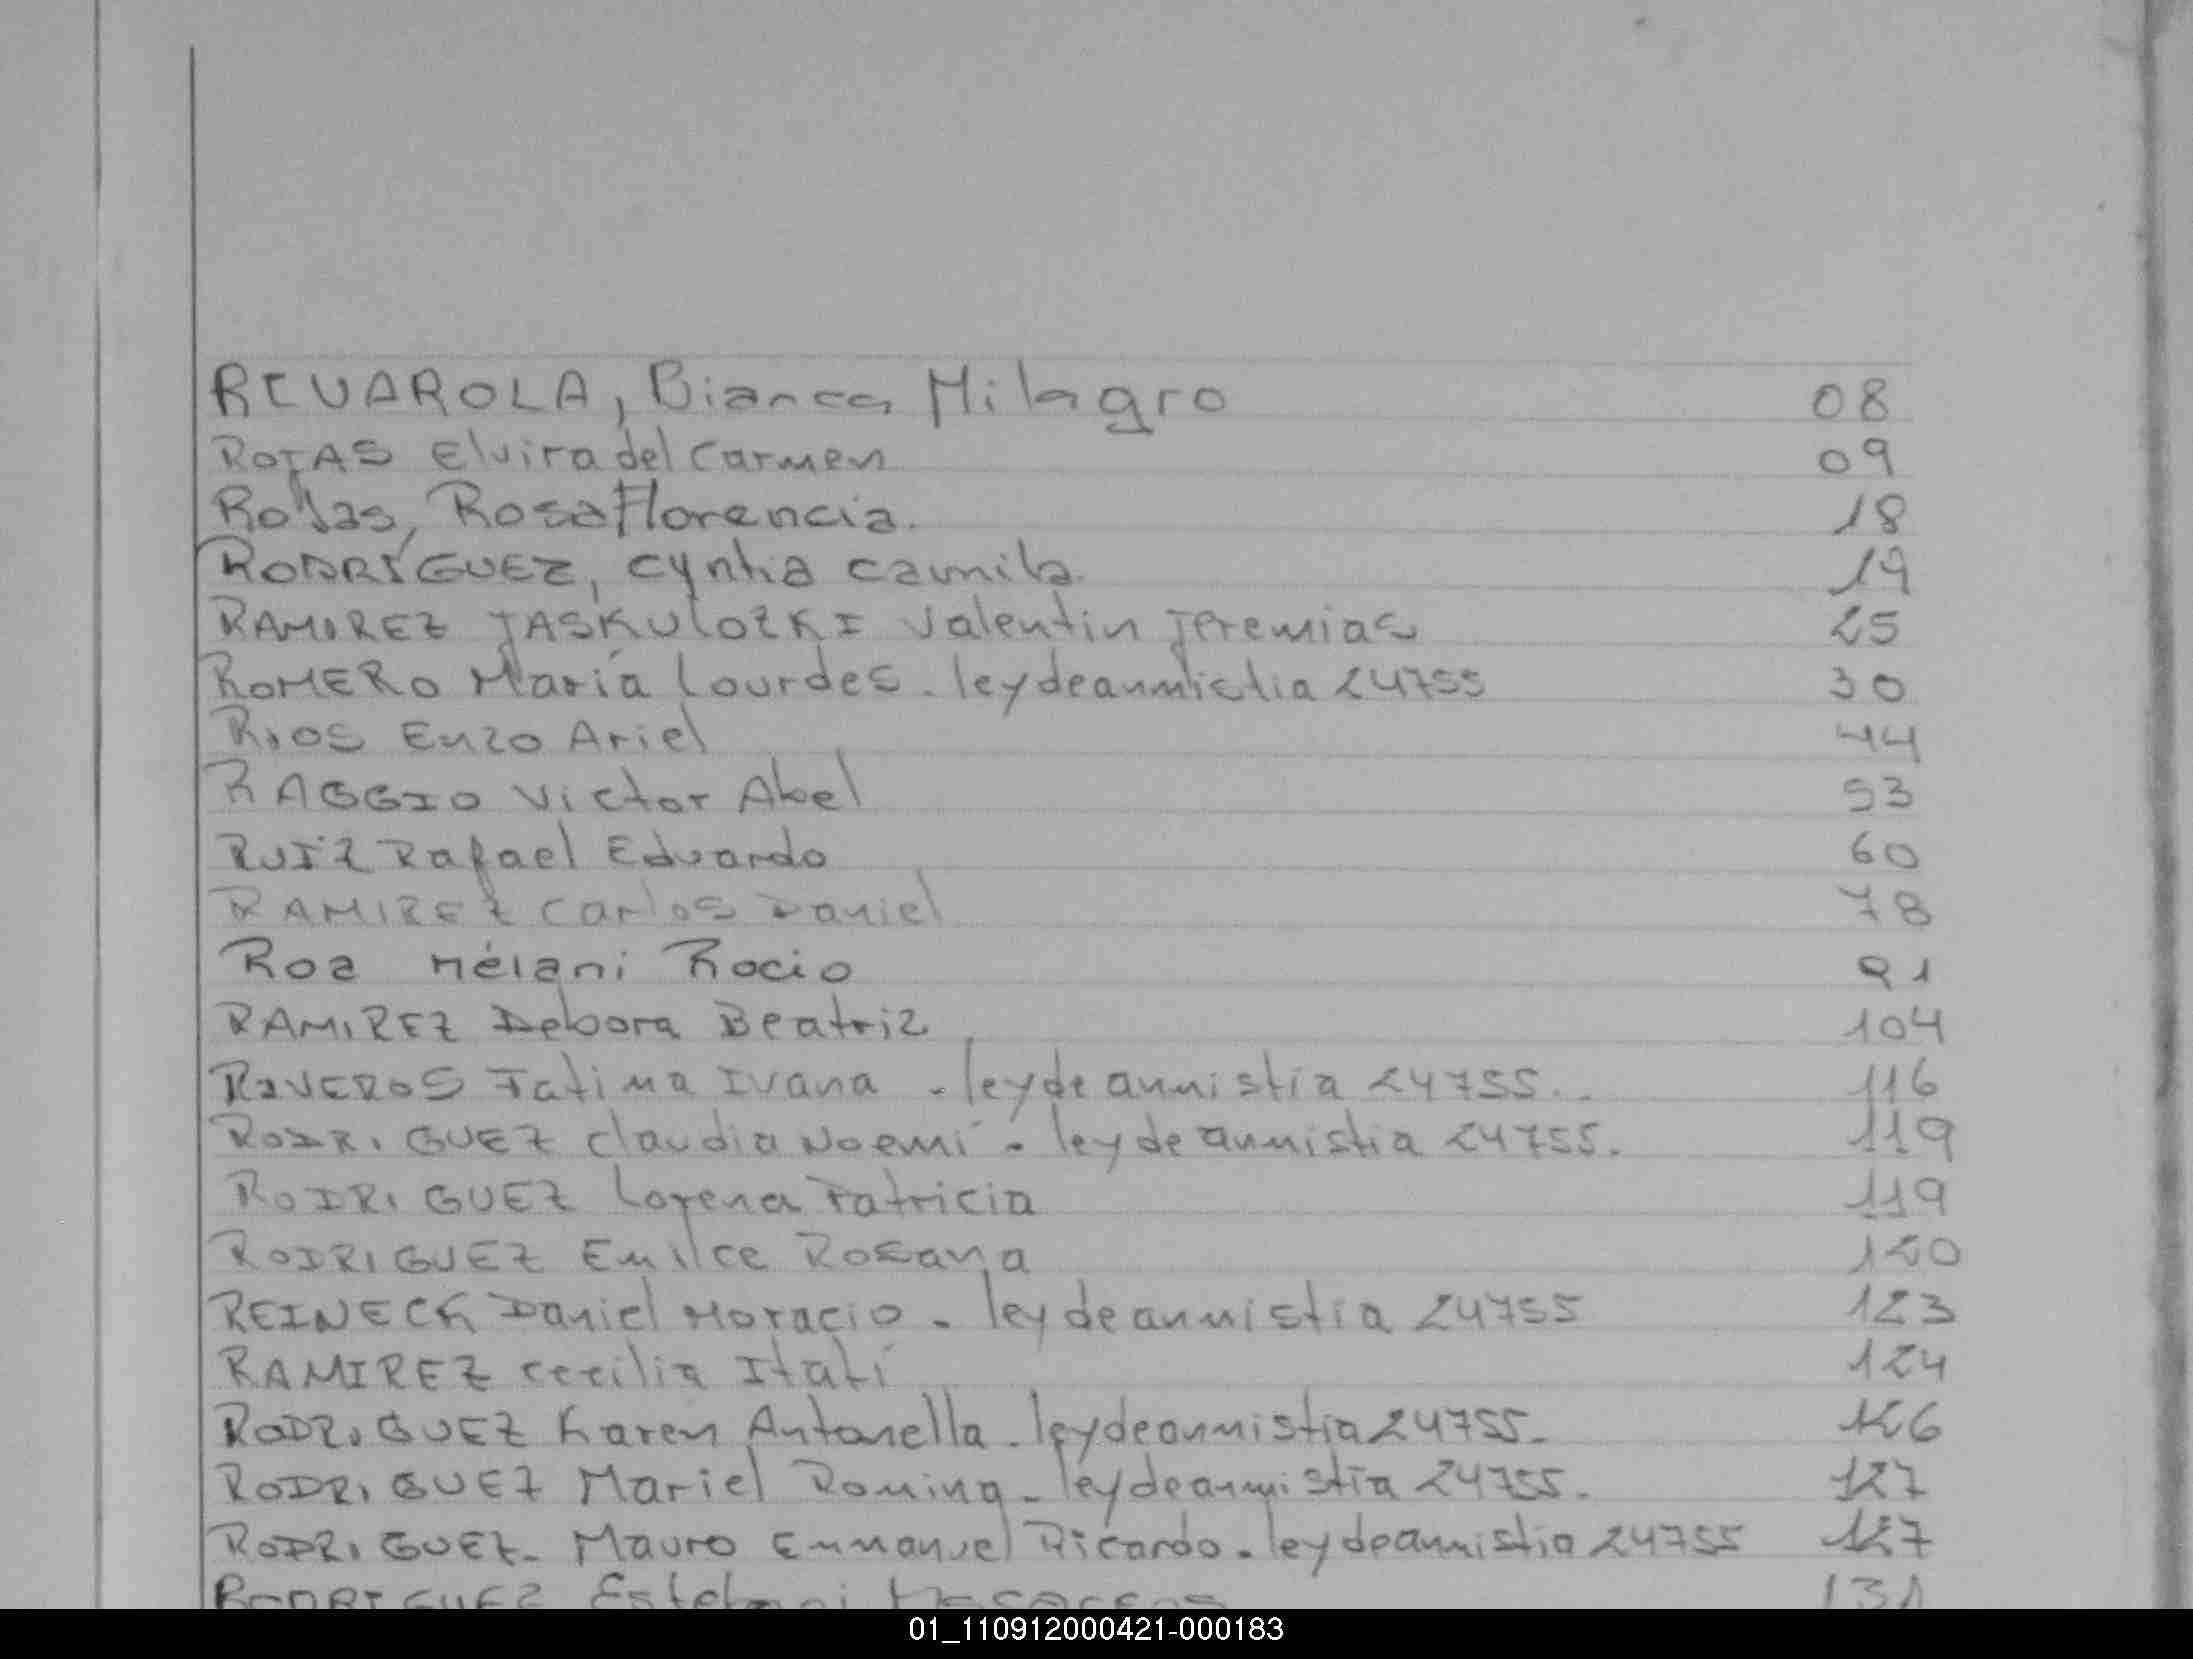 RIVAROLA, Bianca Milagro 08
ROJAS Elvira del Carmen 09
Rojas, Rosa Florencia. 18
RODRÍGUEZ, Cynthia Camila. 19
RAMIREZ JASKULOZKI Valentin Jeremias 25
ROMERO María Lourdes. ley de anmistia 24755 30
RIOS Enzo Ariel 44
RAGGIO Victor Abel 53
RUIZ Rafael Eduardo 60
RAMIREZ Carlos Daniel 78
Roa Mélani Rocio 91
RAMIREZ Debora Beatriz 104
RIVEROS Fatima Ivana - ley de anmistia 24755.. 116
RODRIGUEZ Claudia Noemí - ley de anmistia 24755. 119
RODRIGUEZ Lorena Patricia 119
RODRIGUEZ Emilce Rosana 120
REINECK Daniel Horacio - ley de anmistia 24755 123
RAMIREZ Cecilia Itatí 124
RODRIGUEZ Karen Antonella - ley de anmistia 24755- 126
RODRIGUEZ Mariel Romina - ley de anmistia 24755. 127
RODRIGUEZ- Mauro Emmanuel Ricardo - ley de anmistia 24755 127
RODRIGUEZ 131
01_110912000421-000183